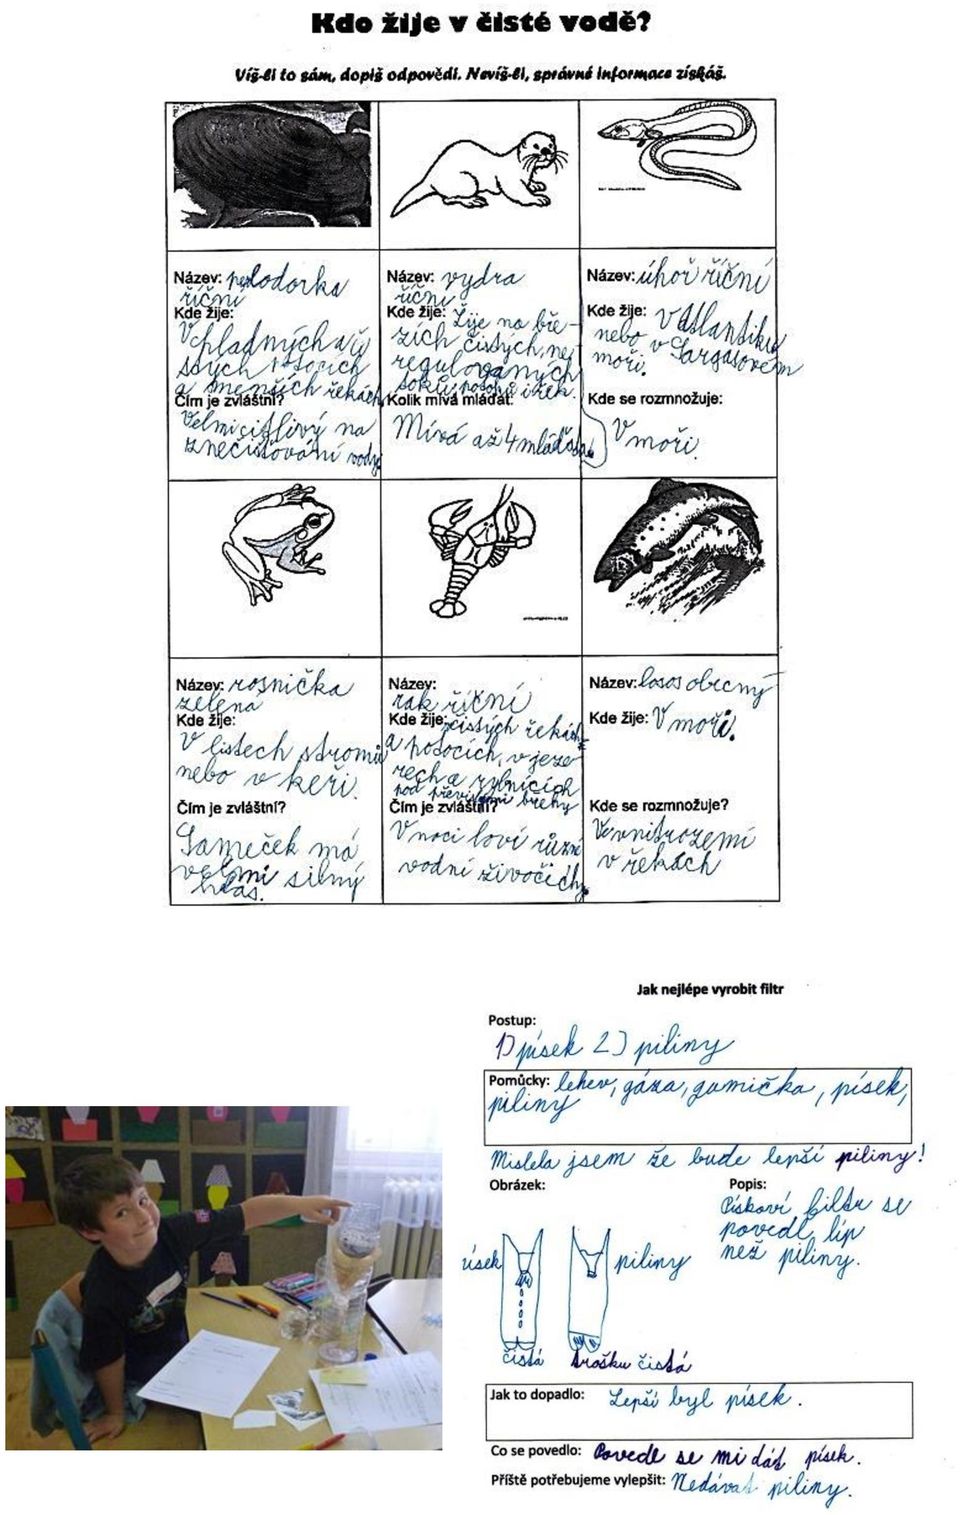 Kdo žije v čisté vodě?
Víš-li to sám, dopiš odpovědi. Nevíš-li, správné informace získáš.
Název: perlodorka
říční
Kde žije:
V chladných a či
stých potocích
a menších řekách
Čím je zvláštní?
Velmi citlivý na
znečisťování vody
Název: vydra
říční
Kde žije: Žije na bře-
zích čistých, ne
regulovaných
toků, potoků i řek.
Kolik mívá mláďat:
Mívá až 4 mláďata.
Název: úhoř říční
Kde žije: V Atlantiku
nebo v Sargasovém
moři.
Kde se rozmnožuje:
V moři.
Název: rosnička
zelená
Kde žije:
V listech stromů
nebo v keři.
Čím je zvláštní?
Sameček má
velmi silný
hlas.
Název:
rak říční
Kde žije: čistých řekách
a potocích, v jeze
rech a rybnících
pod převislými břehy
Čím je zvláštní?
V noci loví různé
vodní živočichy.
Název: losos obecný
Kde žije: V moři.
Kde se rozmnožuje?
Ve vnitrozemí
v řekách
Jak nejlépe vyrobit filtr
Postup:
1) písek 2) piliny
Pomůcky: lehev, gáza, gumička, písek,
piliny
Mislela jsem že bude lepší piliny!
Obrázek:
Popis:
Pískoví filtr se
povedl líp
než piliny.
ísek
piliny
čistá
trošku čistá
Jak to dopadlo: Lepší byl písek.
Co se povedlo: Povedlo se mi dát písek.
Příště potřebujeme vylepšit: Nedávat piliny.